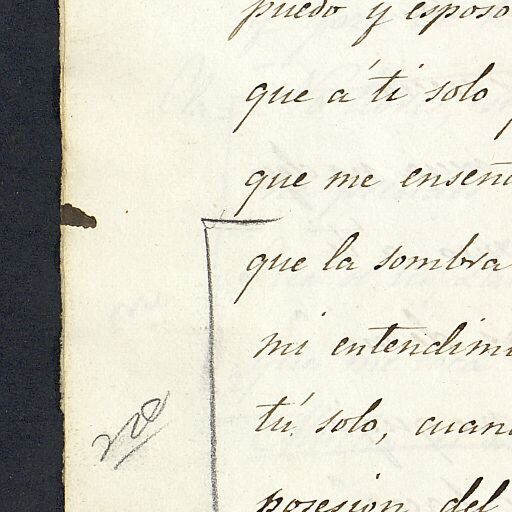 puedo y esposo
que á ti solo
que me enseñ
que la sombra
mi entendimi
tú solo, cuan
no
posesion del